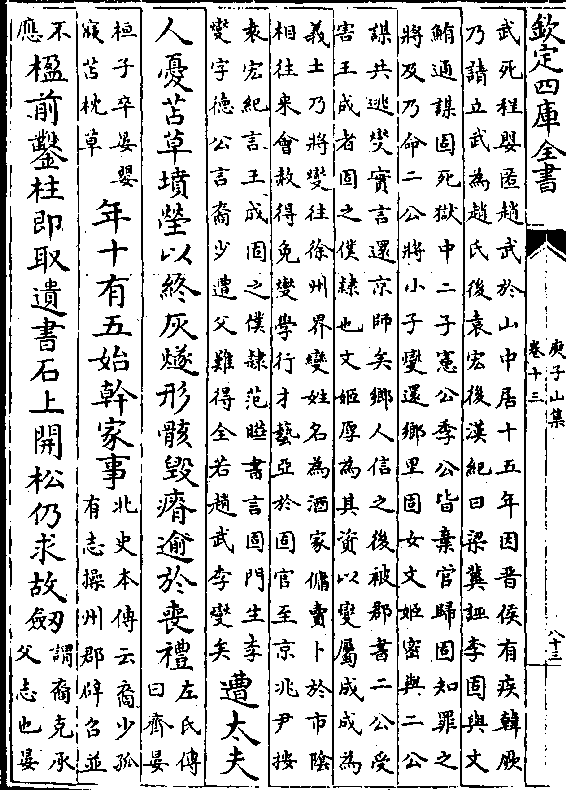 欽定四庫全書
庚子山集
卷十三
八十三
武死程嬰匿趙武於山中居十五年因晉侯有疾韓厥
乃請立武為趙氏後袁宏後漢紀曰梁冀誣李固與文
鮪通謀固死獄中二子憲公季公皆棄官歸固知罪之
將及乃命二公將小子燮還鄉里固女文姬密與二公
謀共逃燮實言還京師矣鄉人信之後被郡書二公受
害王成者固之僕隸也文姬厚為其資以燮屬成成為
義士乃將燮往徐州界變姓名為酒家傭賣卜於市陰
相往來會赦得免燮學行才藝亞於固官至京兆尹按
袁宏紀言王成固之僕隸范曄書言固門生李
燮字德公言裔少遭父難得全若趙武李燮矣
遭太夫
人憂苫草墳塋以終灰燧形骸毀瘠逾於喪禮
左氏傳
曰齊晏
桓子卒晏嬰
寢苫枕草
年十有五始幹家事
北史本傳云裔少孤
有志操州郡辟召並
不
應
楹前鑿柱即取遺書石上開松仍求故劔
謂裔克承
父志也晏